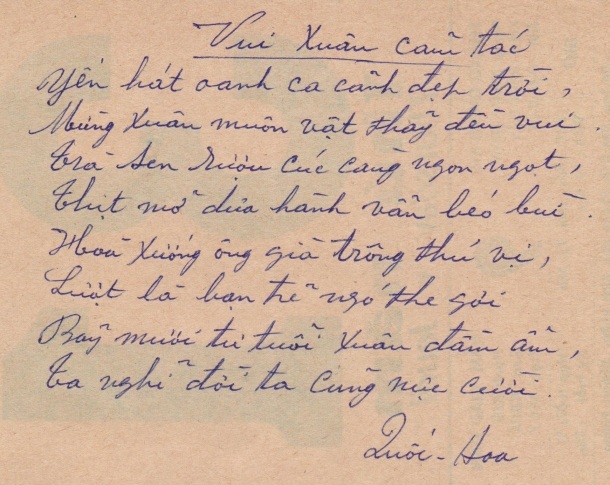 Vui Xuân cảm tác
Yến hát oanh ca cảnh đẹp trời,
Mừng Xuân muôn vật thảy đều vui.
Trà sen rượu cúc càng ngon ngọt,
Thịt mỡ dưa hành vẫn béo bùi.
Hoa xướng ông già trông thú vị,
Lượt là bạn trẻ ngó the gởi
Bảy mươi tư tuổi Xuân đầm ấm,
Ta nghĩ đời ta cũng nực cười.
Quới-Hoa